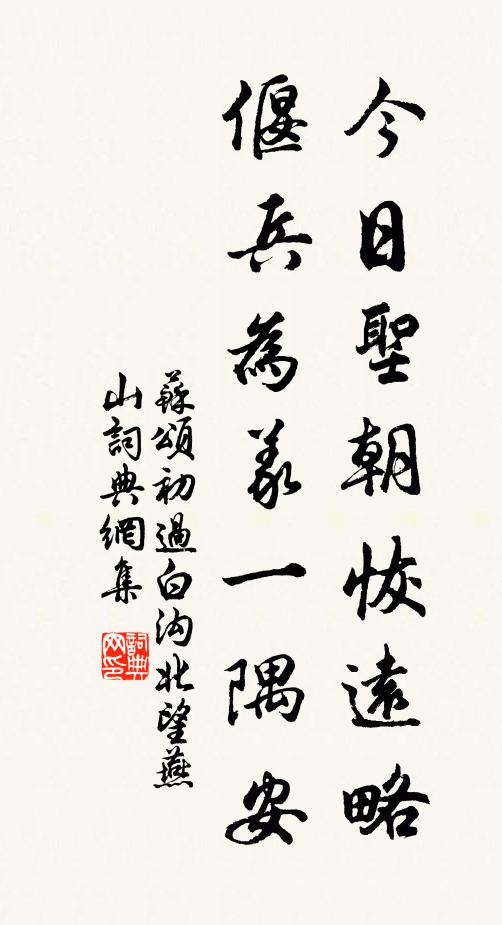 今日聖朝恢遠略
偃兵為義一隅安
蘇頌初過白沟北望燕
山詞典網集
詞典网印